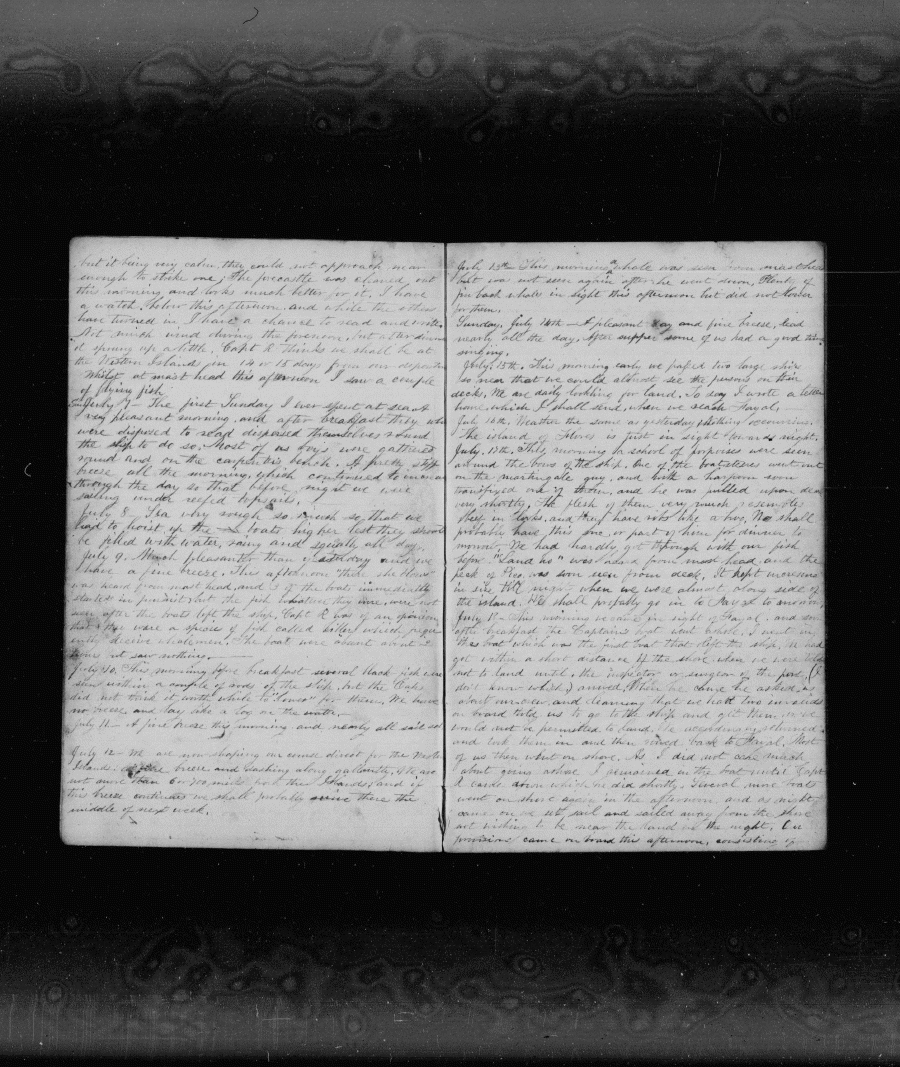 but it being very calm, they could not approach near
enough to strike one; The forecastle was cleaned out
this morning and looks much better for it. I have
a watch below this afternoon, and while the others
have turned in I have a chance to read and write.
Not much wind during the forenoon, but after dinner
it sprung up a little. Capt R thinks we shall be at
the Western Islands in 14 or 15 days from our departure
Whilst at mast head this afternoon I saw a couple
of flying fish.
July 7 The first Sunday I ever spent at sea. A
very pleasant morning, and after breakfast they who
were disposed to read dispersed themselves round
the ship to do so. Most of us boys were gathered
round and on the carpenter's bench. A pretty stiff
breeze all the morning, which continued to increase
through the day so that before night we were
sailing under reefed topsails.
July 8. Sea very rough so much so that we
had to hoist up the boats higher lest they should
be filled with water, rainy and squally all day.
July 9. Much pleasanter than yesterday and we
have a fine breeze. This afternoon "There she blows"
was heard from mast head, and 3 of the boats immediately
started in pursuit, but the fish whatever they were, were not
seen after the boats left the ship, Capt R was of an opinion
that they were a species of fish called killer which
deceive whalemen. The boats were absent about 2
hours but saw nothing.
July 10. This morning before breakfast several black fish were
seen within a couple of rods of the ship, but the Capt
did not think it worth while to "lower" for them. We have
no breeze, and lay like a log on the water.
July 11 - A fine breeze this morning and nearly all sail set
July 12 - We are now shaping our course direct for the Western
Islands; a fine breeze and dashing along gallantly. We are
not more than 6 or 700 miles from the Islands, and if
this breeze continues we shall probably arrive there the
middle of next week.
July 13th This morning a whale was seen from mast head
but was not seen again after he went down. Plenty of
fin back whales in sight this afternoon but did not lower
for them.
Sunday, July 14th - A pleasant day and fine breeze, read
nearly all the day. After supper some of us had a good time
singing.
July 15th. This morning early we passed two large ships
so near that we could almost see the persons on their
decks. We are daily looking for land. To day I wrote a letter
home, which I shall send, when we reach Fayal.
July 16th. Weather the same as yesterday, nothing occurring.
The island of Flores is just in sight towards night.
July, 17th. This morning a school of porpoises were seen
around the bows of the ship. One of the boatsteerers went out
on the martingale guy, and with a harpoon soon
transfixed one of them, and he was pulled upon deck
very shortly. The flesh of them very much resembles
beef in looks, and they have ribs like a hog. We shall
probably have this one, or part of him for dinner to
morrow. We had hardly got through with our fish
before "Land ho" was heard from mast head, and the
peak of Pico was soon seen from deck. It kept
in size till night when we were almost along side of
the island. We shall probably go in to Fayal to morrow.
July 18 - This morning we came in sight of Fayal, and soon
after breakfast the Captain's boat went ashore. I went in
this boat which was the first boat that left the ship. We had
got within a short distance of the shore when we were told
not to land until the inspector or surgeon of the port, (I
don't know which) arrived. When he came he asked us
about and learning that we had two invalids
on board told us to go to the ship and get them, or we
would not be permitted to land. We accordingly returned
and took them in and then rowed back to Fayal. Most
of us then went on shore. As I did not care much
about going ashore I remained in the boat until Capt
R came down which he did shortly. Several more boats
went on shore again in the afternoon, and as night
came on we set sail and sailed away from the shore
not wishing to be near the land in the night. Our
provisions came on board this afternoon, consisting of